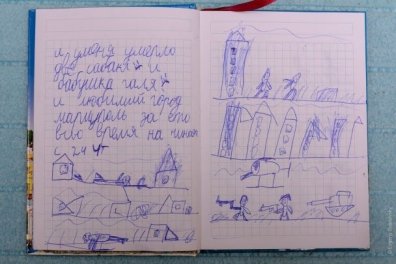 и у меня умерло
две собаки и
бабушка галя
и любимий город
мариуполь за ето
всю время на чиная
с 24 чт